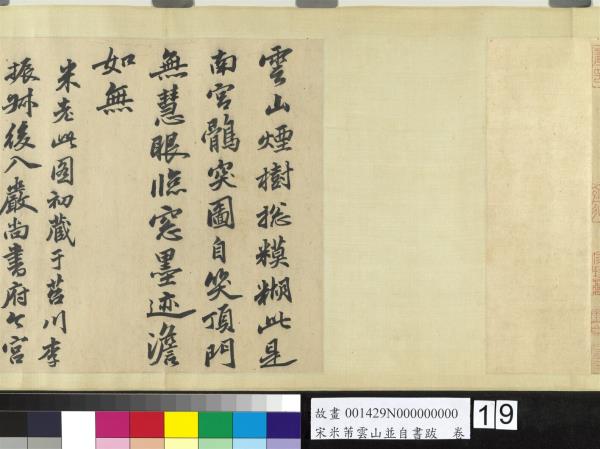 雲山煙樹揔糢糊此是
南宮鶻突圖自笑頂門
無慧眼臨窓墨迹澹
如無
米老此圖初藏于苕川李
振叔後入嚴尚書府今宮
故畫 001429N000000000
宋米芾雲山並自書跋 卷
19